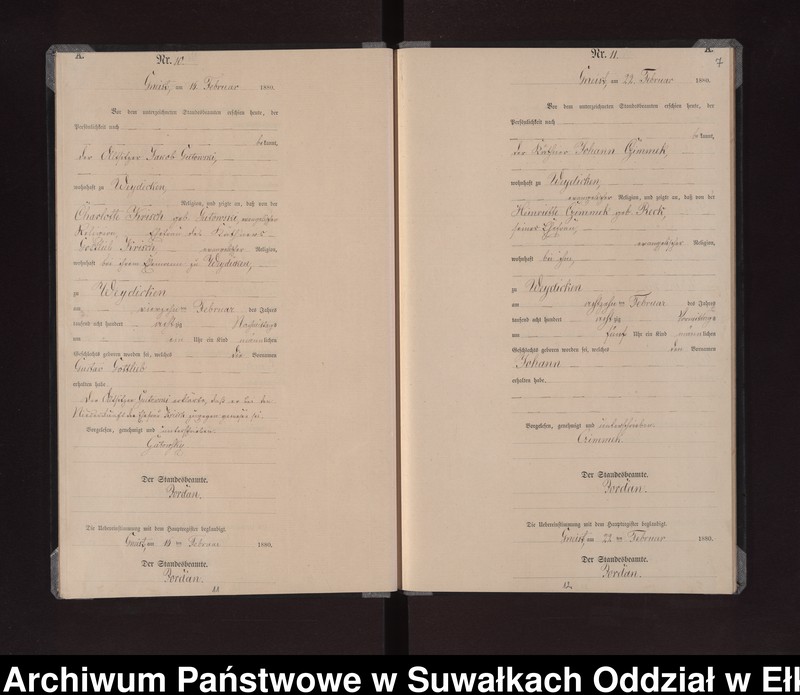 A.
Nr. 10
am 18. Februar 1880.
Vor dem unterzeichneten Standesbeamten erschien heute, der
Persönlichkeit nach
bekannt,
der Altsitzer Jakob
wohnhaft zu Weydicken,
Religion, und zeigte an, daß von der
Charlotte geb. evangelischer
Religion, Ehefrau des Käthners
Gottlieb evangelischer Religion,
wohnhaft bei ihrem Ehemanne zu Weydicken,
zu Weydicken
am Februar des Jahres
tausend acht hundert achtzig Nachmittags
um Uhr ein Kind männlichen
Geschlechts geboren worden sei, welches den Vornamen
Gustav Gottlieb
erhalten habe.
Der Altsitzer erklärte, daß er bei der
Niederkunft der zugegen gewesen sei.
Vorgelesen, genehmigt und unterschrieben
Gutowsky
Der Standesbeamte.
Jordan.
Die Uebereinstimmung mit dem Hauptregister beglaubigt
am 18 ten Februar 1880.
Der Standesbeamte.
Jordan.
11
A.
7
Nr. 11
am 22. Februar 1880.
Vor dem unterzeichneten Standesbeamten erschien heute, der
Persönlichkeit nach
bekannt,
der Käthner Johann Czimmek,
wohnhaft zu Weydicken,
evangelischer Religion, und zeigte an, daß von der
Henriette Czimmek geb. Reck,
seiner Ehefrau,
evangelischer Religion,
wohnhaft bei ihm,
zu Weydicken
am achtzehn ten Februar des Jahres
tausend acht hundert achtzig Vormittags
um fünf Uhr ein Kind männlichen
Geschlechts geboren worden sei, welches den Vornamen
Johann
erhalten habe.
Vorgelesen, genehmigt und unterschrieben
Czimmek.
Der Standesbeamte.
Jordan.
Die Uebereinstimmung mit dem Hauptregister beglaubigt
am 22 ten Februar 1880.
Der Standesbeamte.
Jordan.
12
Archiwum Państwowe w Suwałkach Oddział w Eł